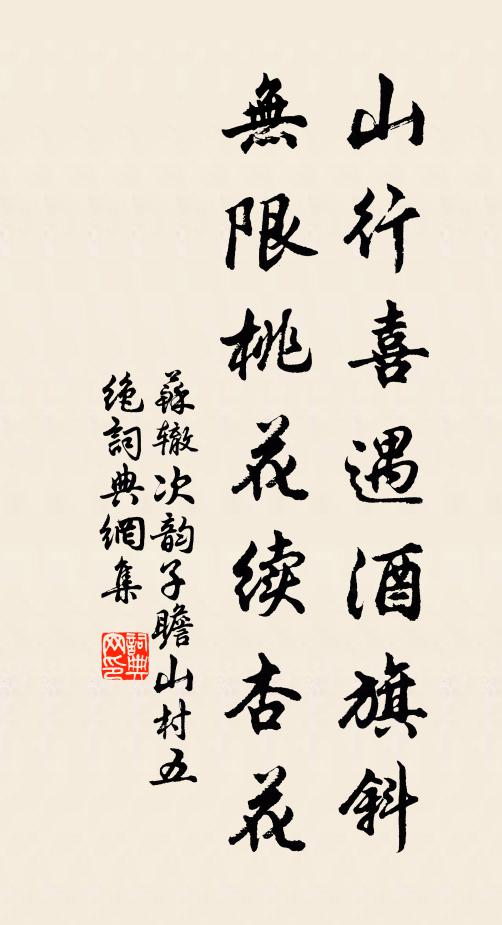 山行喜遇酒旗斜
無限桃花续杏花
蘇辙次韵子瞻山村五
绝詞典網集
詞典网印